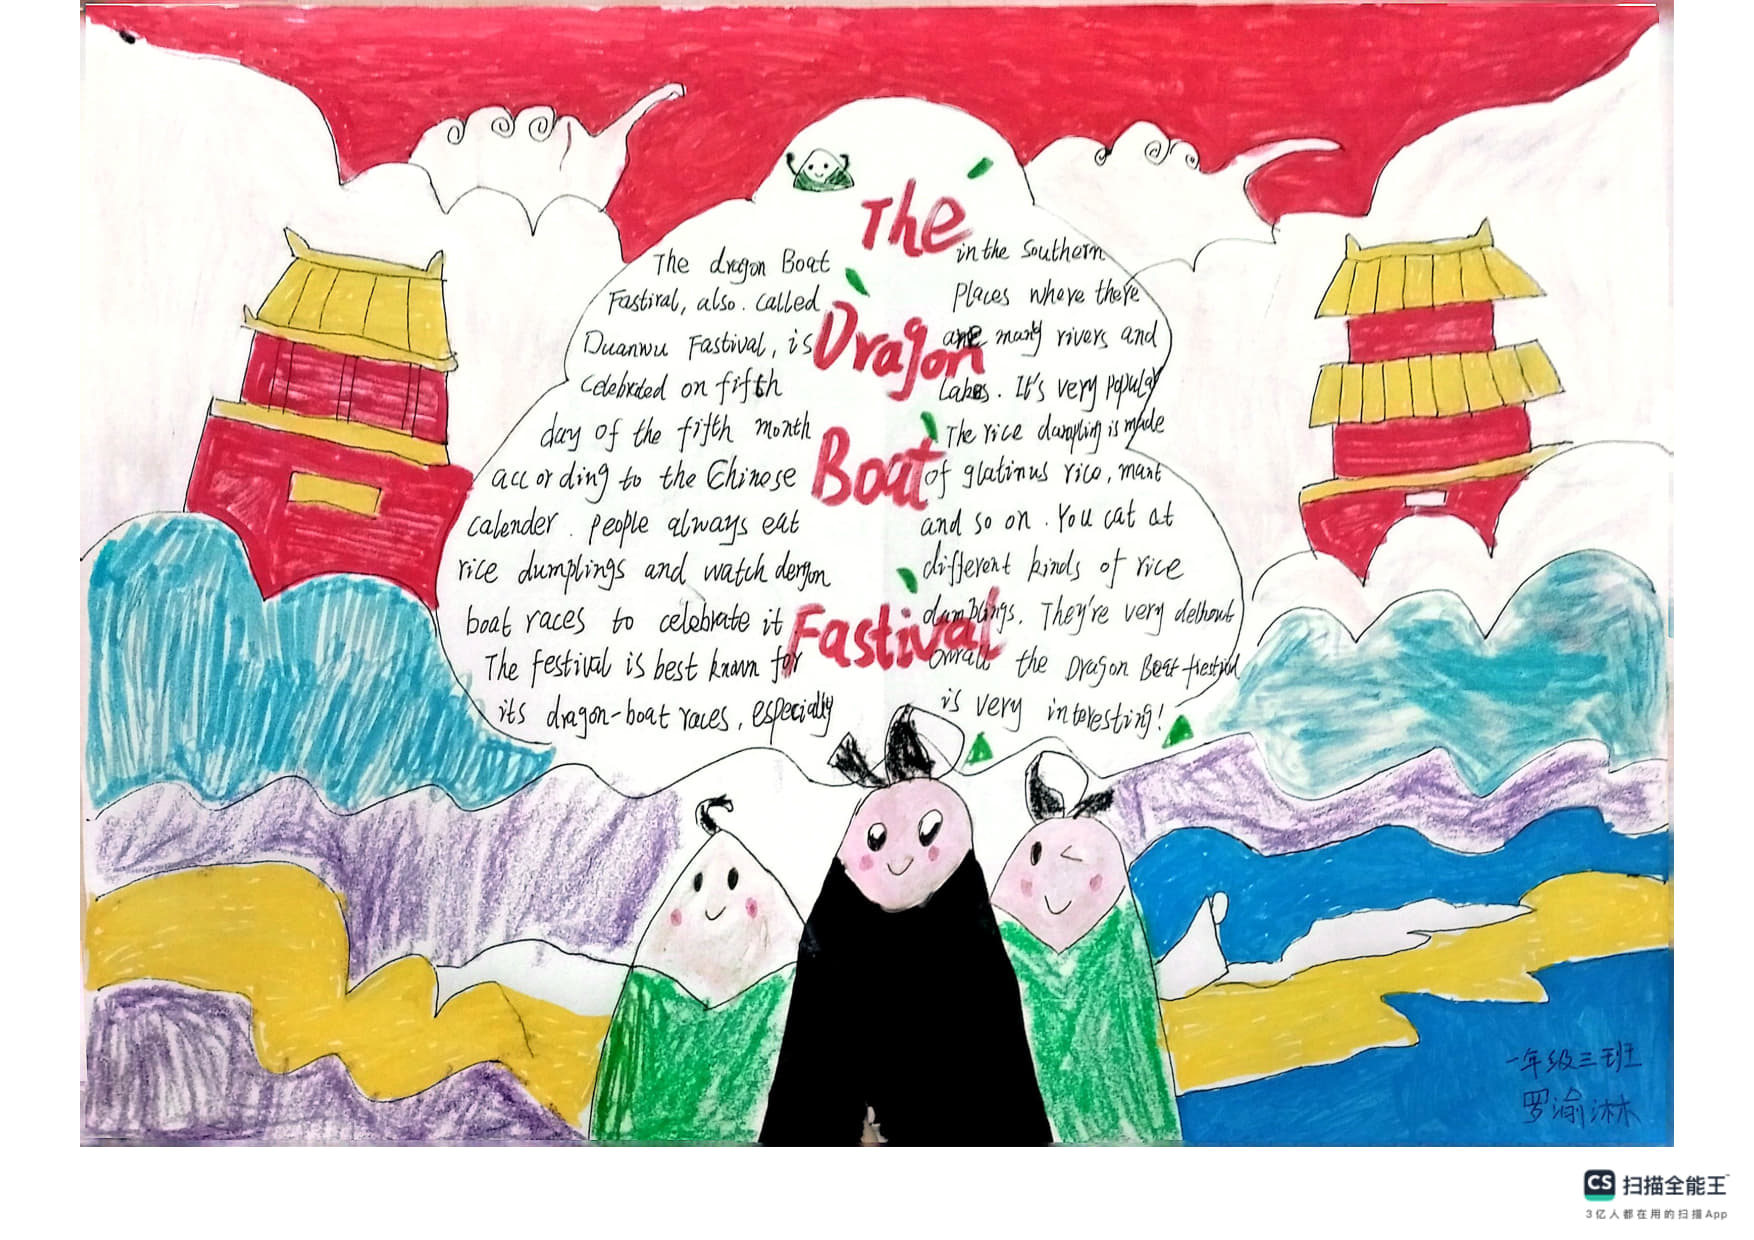 The
Dragon
Boat
Fastival
The dragon Boat
Fastival, also. called
Duanwu Fastival, is
celebrated on fifth
day of the fifth month
according to the Chinese
calender. people always eat
rice dumplings and watch dergon
boat races to celebrate it
The festival is best known for
its dragon-boat races, especially
in the Southern
Places where there
are many rivers and
lakes. It's very popular
The rice dumpling is made
of glatinus rice, mant
and so on. You cat at
different kinds of rice
dumblings. They're very
the Dragon Boat
is very interesting!
一年级三班
罗渝淋
CS 扫描全能王
3亿人都在用的扫描App